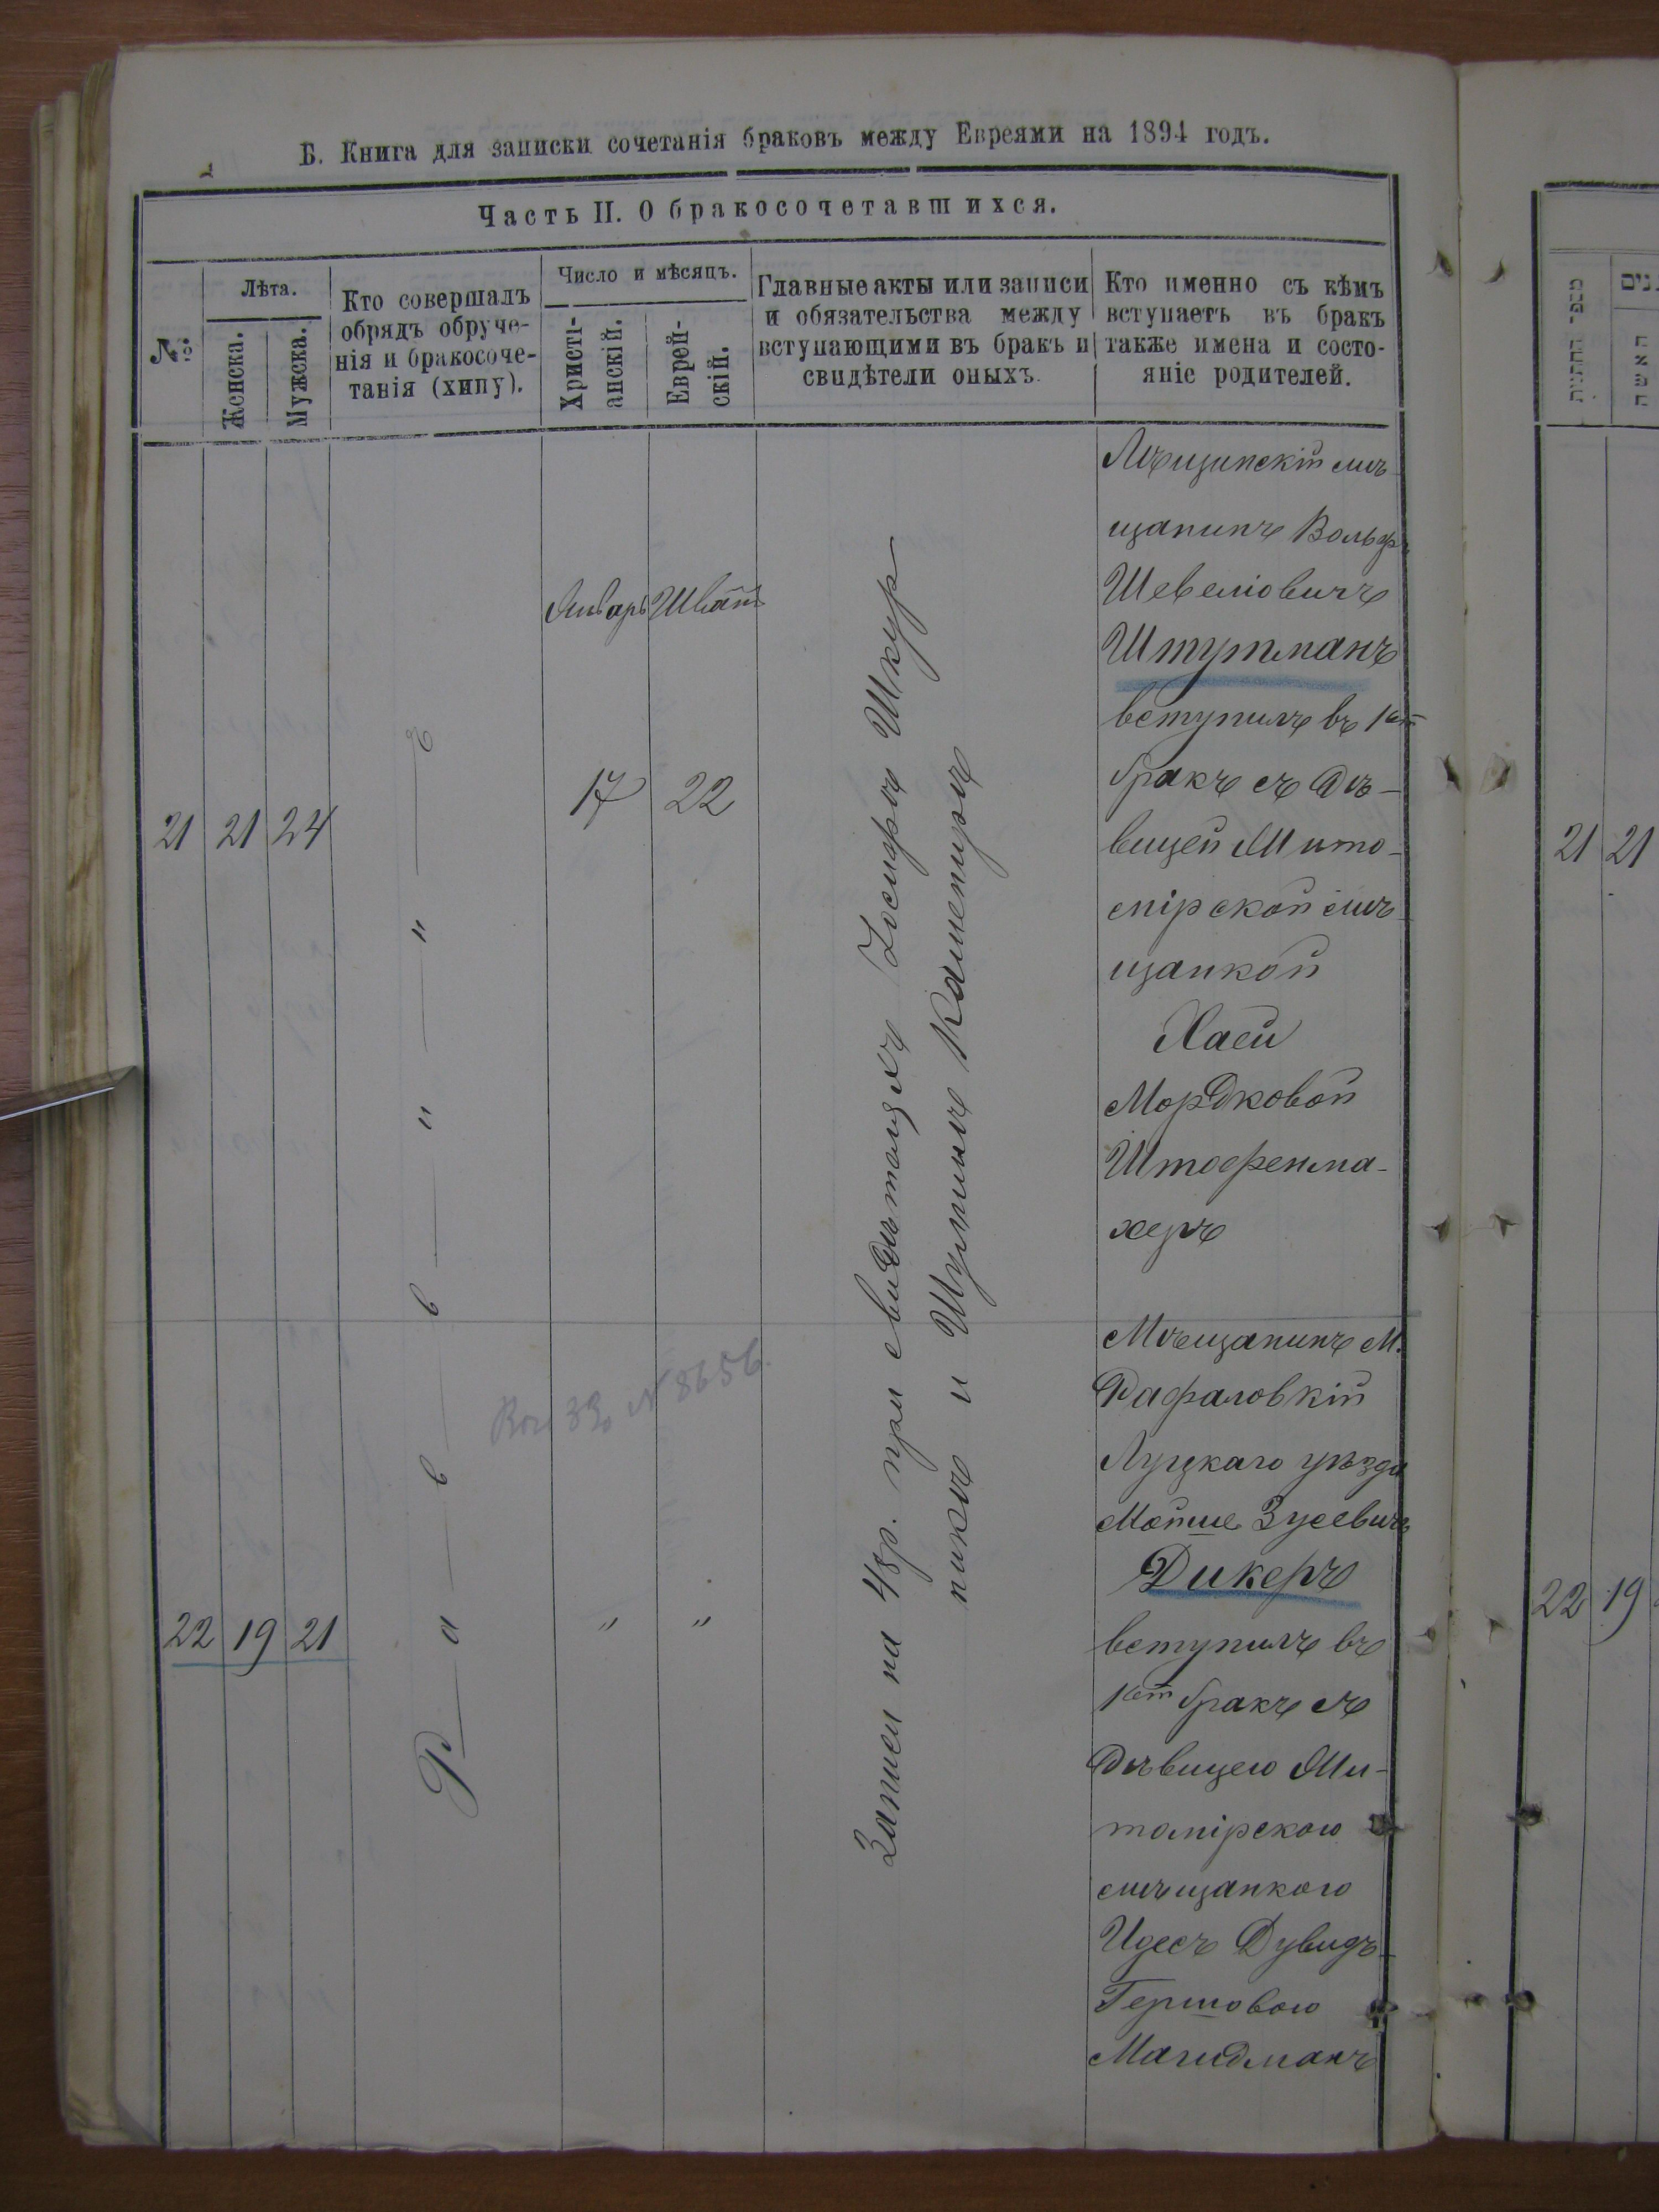 Б. Книга для записки сочетанія браковъ между Евреями на 1894 годъ.
Часть II. О бракосочетавшихся.
№
Лѣта.
Женска.
Мужска.
Кто совершалъ
обрядъ обруче-
нія и бракосоче-
танія (хипу).
Число и мѣсяцъ.
Христі-
анскій.
Еврей-
скій.
Главные акты или записи
и обязательства между
вступающими въ бракъ и
свидѣтели оныхъ.
Кто именно съ кѣмъ
вступаетъ въ бракъ
также имена и состо-
яніе родителей.
21 21 24
Январь Шватъ
17 22
Р а в в и н ъ
Записи на 48р. при свидѣтеляхъ Іосифѣ Шкур
никѣ и Шулимѣ Каменирѣ
мѣ-
щанинъ Вольфъ
Шевеліовичъ
Штутманъ
вступилъ въ 1ый
бракъ съ дѣ-
вицей Жито-
мірской мѣ-
щанкой
Хаей
Мордковой
Штофенма-
херъ
22 19 21
" "
№ 8656.
Мѣщанинъ м.
Рафаловкій
Луцкаго уѣзда
Мойше Зусевичъ
Дикеръ
вступилъ въ
1ый бракъ съ
дѣвицею Жи-
томірскою
мѣщанкою
Идесъ Дувидъ-
Гершовою
Магидманъ
מספר החתנות
האשה
21 21
22 19